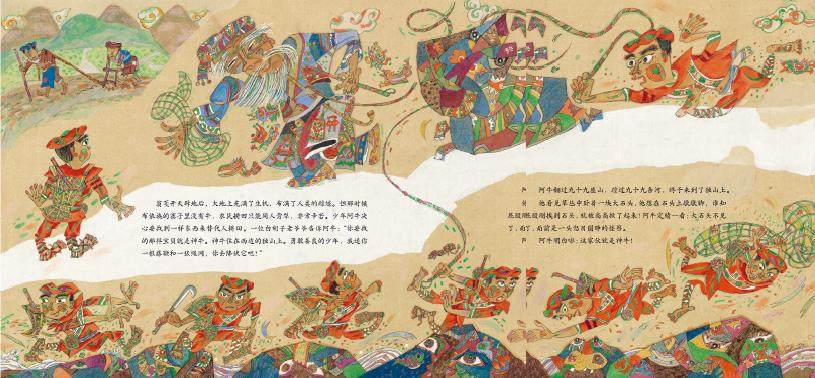 翁戛开天辟地后，大地上充满了生机，布满了人类的踪迹。但那时候
布依族的寨子里没有牛，农民耕田只能用人背犁，非常辛苦。少年阿牛决
心要找到一样东西来替代人耕田。一位白胡子老爷爷告诉阿牛：“你要找
的那样宝贝就是神牛。神牛住在西边的独山上。勇敢善良的少年，我送你
一根藤鞭和一张绳网，你去降伏它吧！”
阿牛翻过九十九座山，蹚过九十九条河，终于来到了独山上。
他看见草丛中卧着一块大石头，他想在石头上歇歇脚，谁知
屁股刚挨着石头，就被高高掀了起来！阿牛定睛一看：大石头不见
了，面前是一头怒目圆睁的怪兽。
阿牛明白啦：这家伙就是神牛！